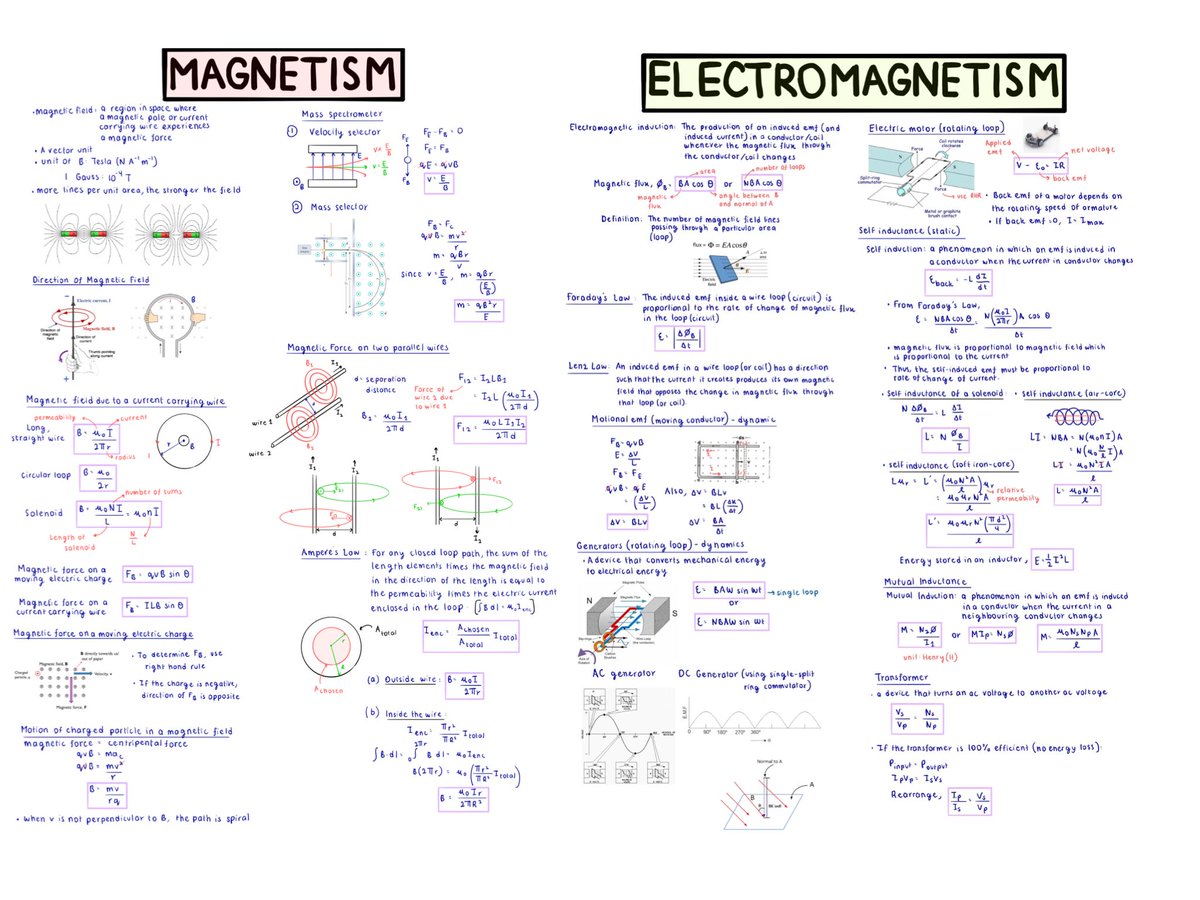 MAGNETISM
• magnetic field: a region in space where
a magnetic pole or current
carrying wire experiences
a magnetic force
• A vector unit
• unit of B: Tesla (N A⁻¹ m⁻¹)
1 Gauss: 10⁻⁴ T
• more lines per unit area, the stronger the field
Direction of Magnetic Field
Electric current, I
Magnetic field, B
Direction of magnetic field
Direction of current
Thumb pointing along current
I
B
Magnetic field due to a current carrying wire
permeability
current
Long, straight wire
B = μ₀I / 2πr
radius
Circular loop
B = μ₀ / 2r
number of turns
Solenoid
B = μ₀NI / L = μ₀nI
Length of solenoid
N/L
Magnetic force on a
moving electric charge
F_B = qvB sin θ
Magnetic force on a
current carrying wire
F_B = ILB sin θ
Magnetic force on a moving electric charge
Magnetic field, B
B directly towards us/
out of paper
Velocity, v
Magnetic force, F
• To determine F_B, use
right hand rule
• If the charge is negative,
direction of F_B is opposite
Motion of charged particle in a magnetic field
magnetic force = centripental force
qvB = ma_c
qvB = mv² / r
B = mv / rq
• when v is not perpendicular to B, the path is spiral
Mass spectrometer
① Velocity selector
E
B
v = E/B
v = E/B
F_E
F_B
F_E - F_B = 0
F_E = F_B
qE = qvB
v = E/B
② Mass selector
F_B = F_c
qvB = mv² / r
m = qBr / v
since v = E/B, m = qBr / (E/B)
m = qB²r / E
Magnetic Force on two parallel wires
B₂
I₁
I₂
wire 1
wire 2
B₂
d = separation
distance
B₂ = μ₀I₁ / 2πd
Force of
wire 2 due
to wire 1
F₁₂ = I₂LB₁
= I₂L (μ₀I₁ / 2πd)
F₁₂ = μ₀LI₁I₂ / 2πd
I₁
I₂
F₂₁
d
I₁
F₁₂
F₂₁
d
I₂
Amperes Law : For any closed loop path, the sum of the
length elements times the magnetic field
in the direction of the length is equal to
the permeability times the electric current
enclosed in the loop : ∫B dl = μ₀I_enc
A total
A chosen
I_enc = A_chosen / A_total I_total
(a) Outside wire : B = μ₀I / 2πr
(b) Inside the wire :
I_enc = πr² / πR² I_total
∫B·dl = ∫₀^2πr B dl = μ₀I_enc
B(2πr) = μ₀ (πr² / πR² I_total)
B = μ₀Ir / 2πR²
ELECTROMAGNETISM
Electromagnetic induction: The production of an induced emf (and
induced current) in a conductor/coil
whenever the magnetic flux through
the conductor/coil changes
area
number of loops
Magnetic flux, Ø_B = BA cos θ or NBA cos θ
magnetic flux
angle between B
and normal of A
Definition: The number of magnetic field lines
passing through a particular area
(loop)
flux = Φ = EA cosθ
Electric field
Faraday's Law : The induced emf inside a wire loop (circuit) is
proportional to the rate of change of magnetic flux
in the loop (circuit)
ε = |ΔØ_B / Δt|
Lenz Law: An induced emf in a wire loop (or coil) has a direction
such that the current it creates produces its own magnetic
field that opposes the change in magnetic flux through
that loop (or coil).
Motional emf (moving conductor) - dynamic
F_B = qvB
E = ΔV / L
F_B = F_E
qvB = qE
= (ΔV / L)
ΔV = BLv
Also, ΔV = BLv
= BL (Δx / Δt)
ΔV = BA / Δt
Generators (rotating loop) - dynamics
• A device that converts mechanical energy
to electrical energy
N
S
Magnetic Poles
Magnetic Flux
Slip rings
Carbon Brushes
Wire Loop
Axis of Rotation
ε = BAW sin wt → single loop
or
ε = NBAW sin wt
AC generator
DC Generator (using single-split
ring commutator)
E.M.F
0 90° 180° 270° 360°
Normal to A
B
A
θ
Electric motor (rotating loop)
Force
Coil rotates clockwise
S
Split-ring commutator
Force
Metal or graphite brush contact
use RHR
Applied emf
net voltage
V - ε₀ = IR
back emf
• Back emf of a motor depends on
the rotating speed of armature
• If back emf = 0, I = I max
Self inductance (static)
Self induction: a phenomenon in which an emf is induced in
a conductor when the current in conductor changes
ε back = -L dI / dt
• From Faraday's Law,
ε = NBA cos θ / Δt = N(μ₀I / 2πr) A cos θ / Δt
• magnetic flux is proportional to magnetic field which
is proportional to the current
• Thus, the self-induced emf must be proportional to
rate of change of current.
• Self inductance of a solenoid
N ΔØ_B / Δt = L ΔI / Δt
L = N Ø_B / I
• self inductance (air-core)
LI = NBA = N(μ₀nI)A
= N(μ₀ N/l I)A
LI = μ₀N²IA / l
L = μ₀N²A / l
• self inductance (soft iron-core)
Lμr = L' = (μ₀N²A / l) μr
= μ₀μrN²A / l
relative
permeability
L' = μ₀μrN² (πd² / 4) / l
Energy stored in an inductor, E = ½ I²L
Mutual Inductance
Mutual Induction: a phenomenon in which an emf is induced
in a conductor when the current in a
neighbouring conductor changes
M = N₂Ø / I₁ or MIp = NsØ
M = μ₀NsNpA / l
unit: Henry (H)
Transformer
• a device that turns an ac voltage to another ac voltage
Vs / Vp = Ns / Np
• If the transformer is 100% efficient (no energy loss):
P input = P output
IpVp = IsVs
Rearrange, Ip / Is = Vs / Vp